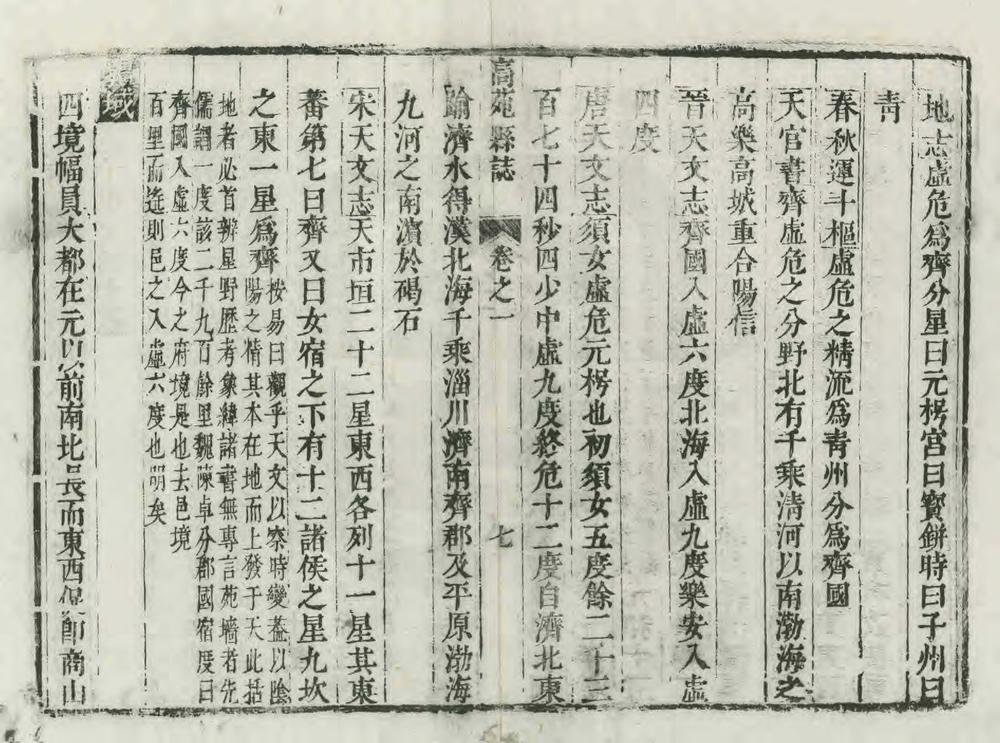 地志虛危爲齊分星曰元枵宮曰寶缾時曰子州曰
青
春秋運斗樞虛危之精流爲青州分爲齊國
天官書齊虛危之分野北有千乘清河以南渤海之
高樂高城重合陽信
晉天文志齊國入虛六度北海入虛九度樂安入虛
四度
唐天文志須女虛危元枵也初須女五度餘二千三
百七十四秒四少中虛九度終危十二度自濟北東
踰濟水得漢北海千乘淄川濟南齊郡及平原渤海
九河之南濵於碣石
高苑縣誌
卷之一
七
宋天文志天市垣二十二星東西各列十一星其東
蕃第七曰齊又曰女宿之下有十二諸侯之星九坎
之東一星爲齊
按易曰觀乎天文以察時變葢以陰
陽之情其本在地而上發于天此括
地者必首辨星野歷考象緯諸書無專言苑墻者先
儒謂一度該二千九百餘里魏陳卓分郡國宿度曰
齊國入虛六度今之府境是也去邑境
百里而遙則邑之入虛六度也明矣
域
四境幅員大都在元以前南北長而東西促節商山